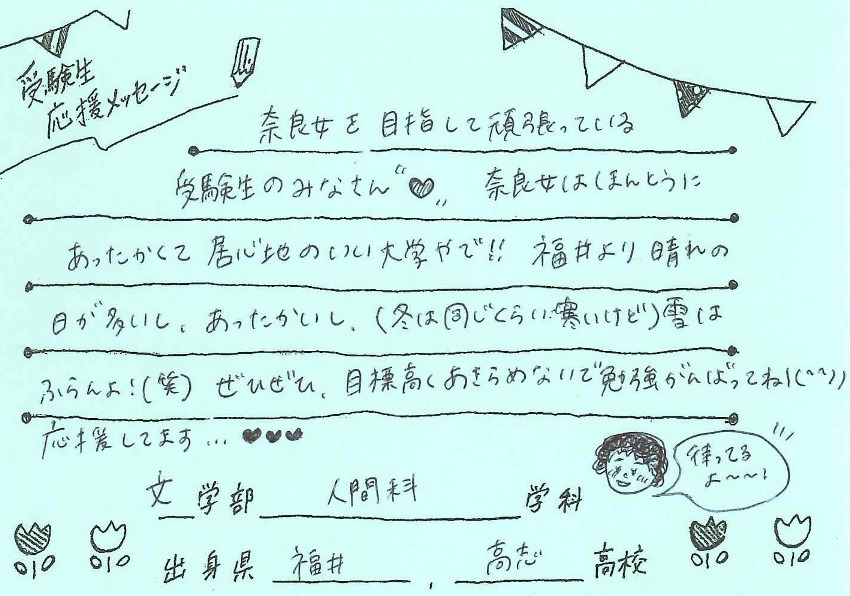 受験生
応援メッセージ
奈良女を目指して頑張っている
受験生のみなさん 奈良女はほんとうに
あったかくて居心地のいい大学やで!! 福井より晴れの
日が多いし、あったかいし、(冬は同じくらい寒いけど)雪は
ふらんよ!(笑) ぜひぜひ、目標高くあきらめないで勉強がんばってね!(^^))
応援してます...
待ってる
よ〜〜!
文学部 人間科 学科
出身県 福井 , 高志 高校